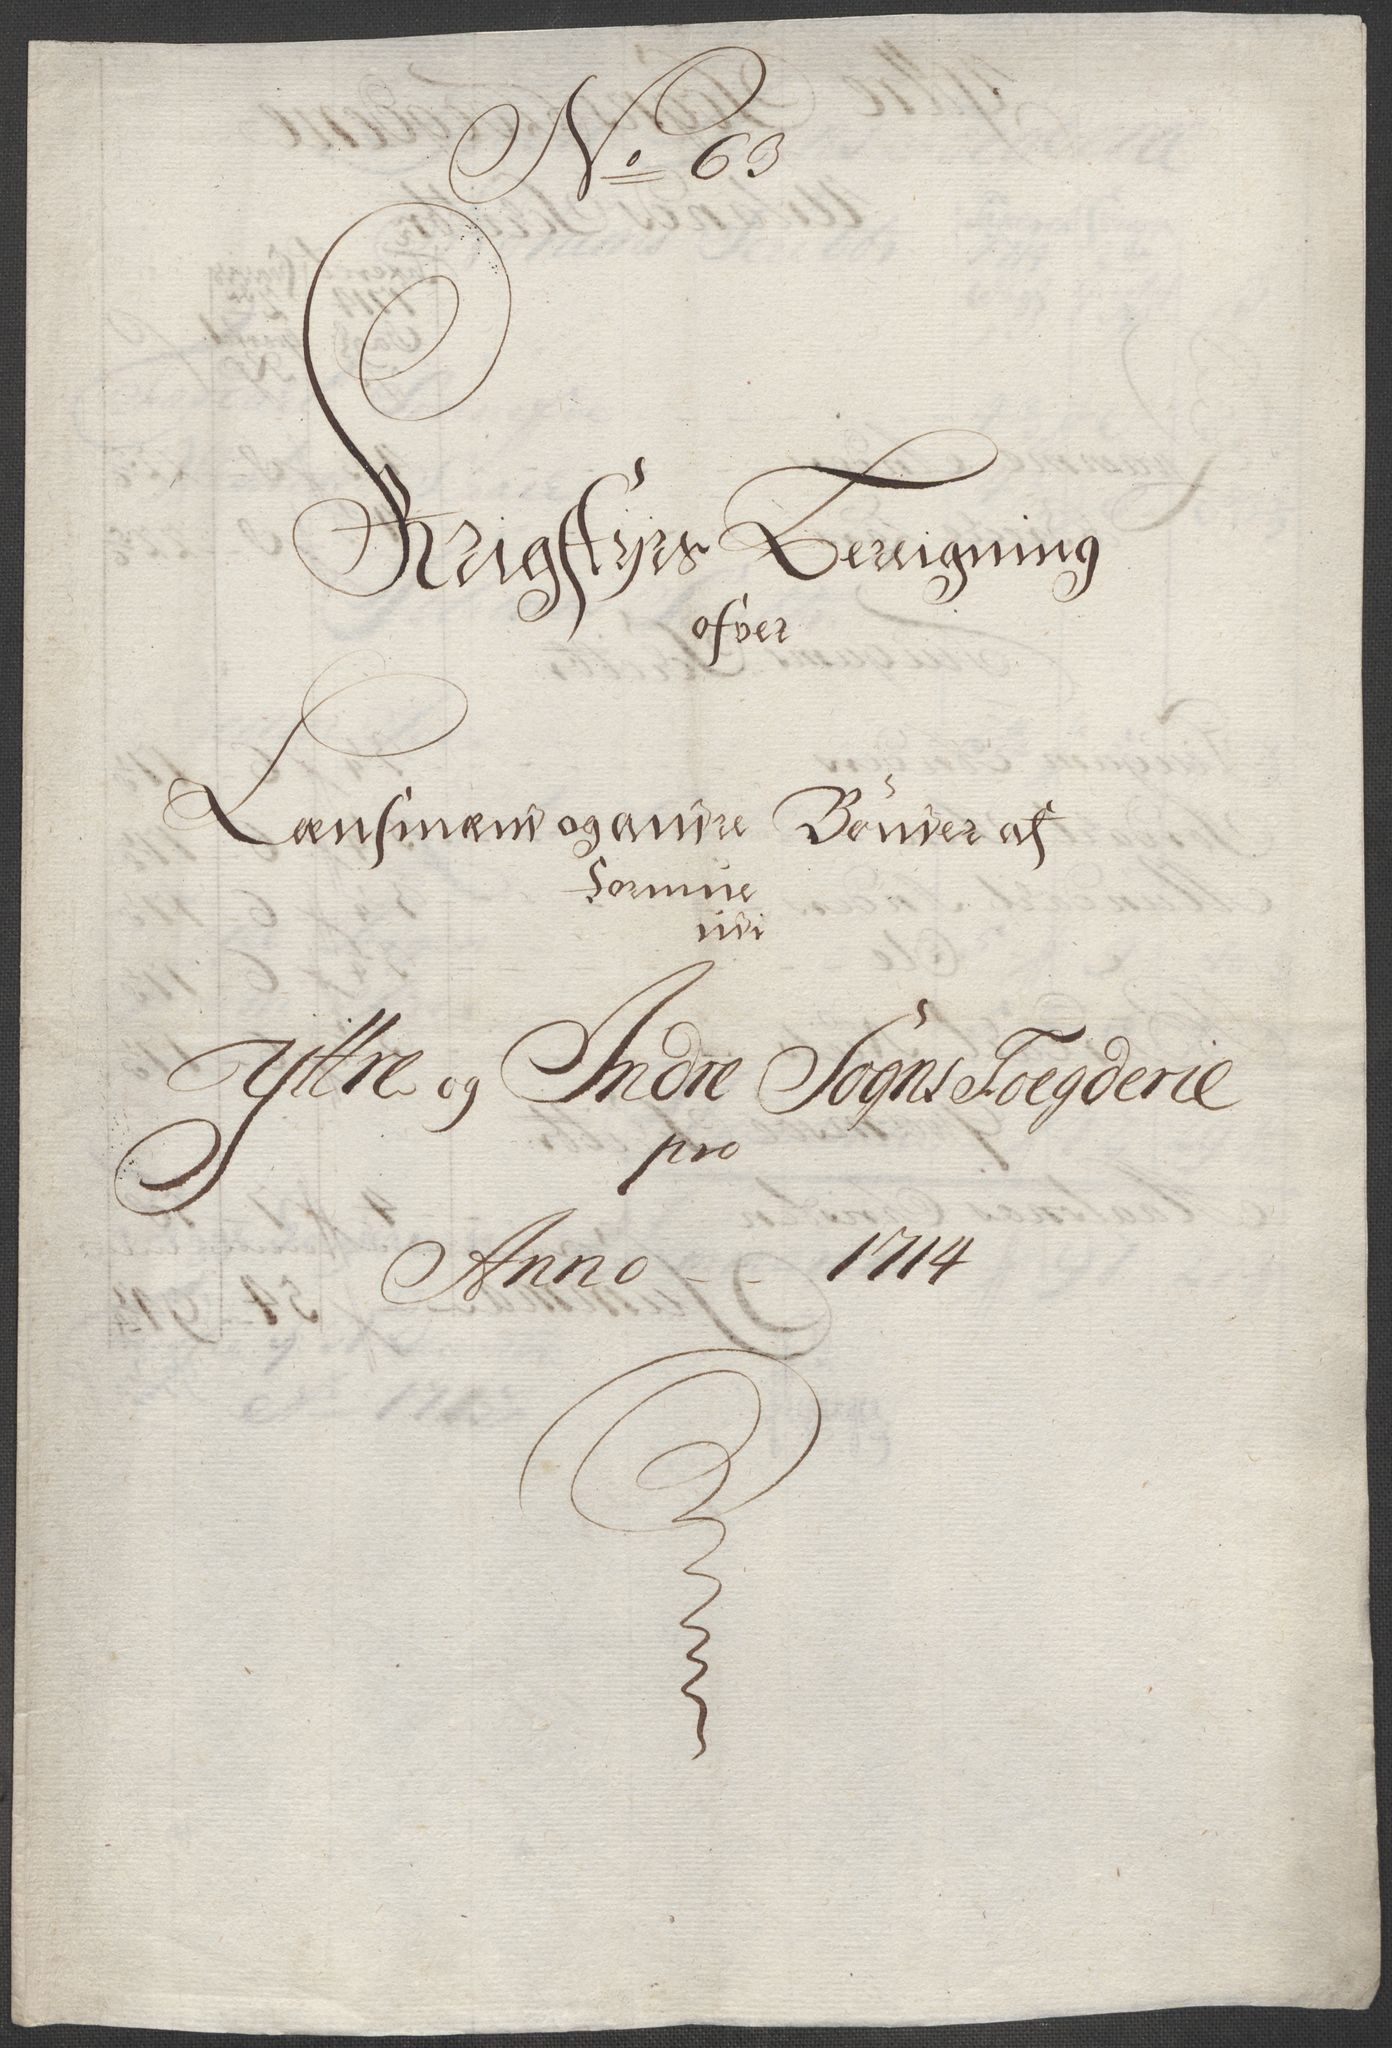 No 63
Krigstyrs Bereigning
ofver
Lænsmænd og andre Bønder af
Formue
udi
Yttre og Indre Sogns Foegderie
pro
Anno - - 1714